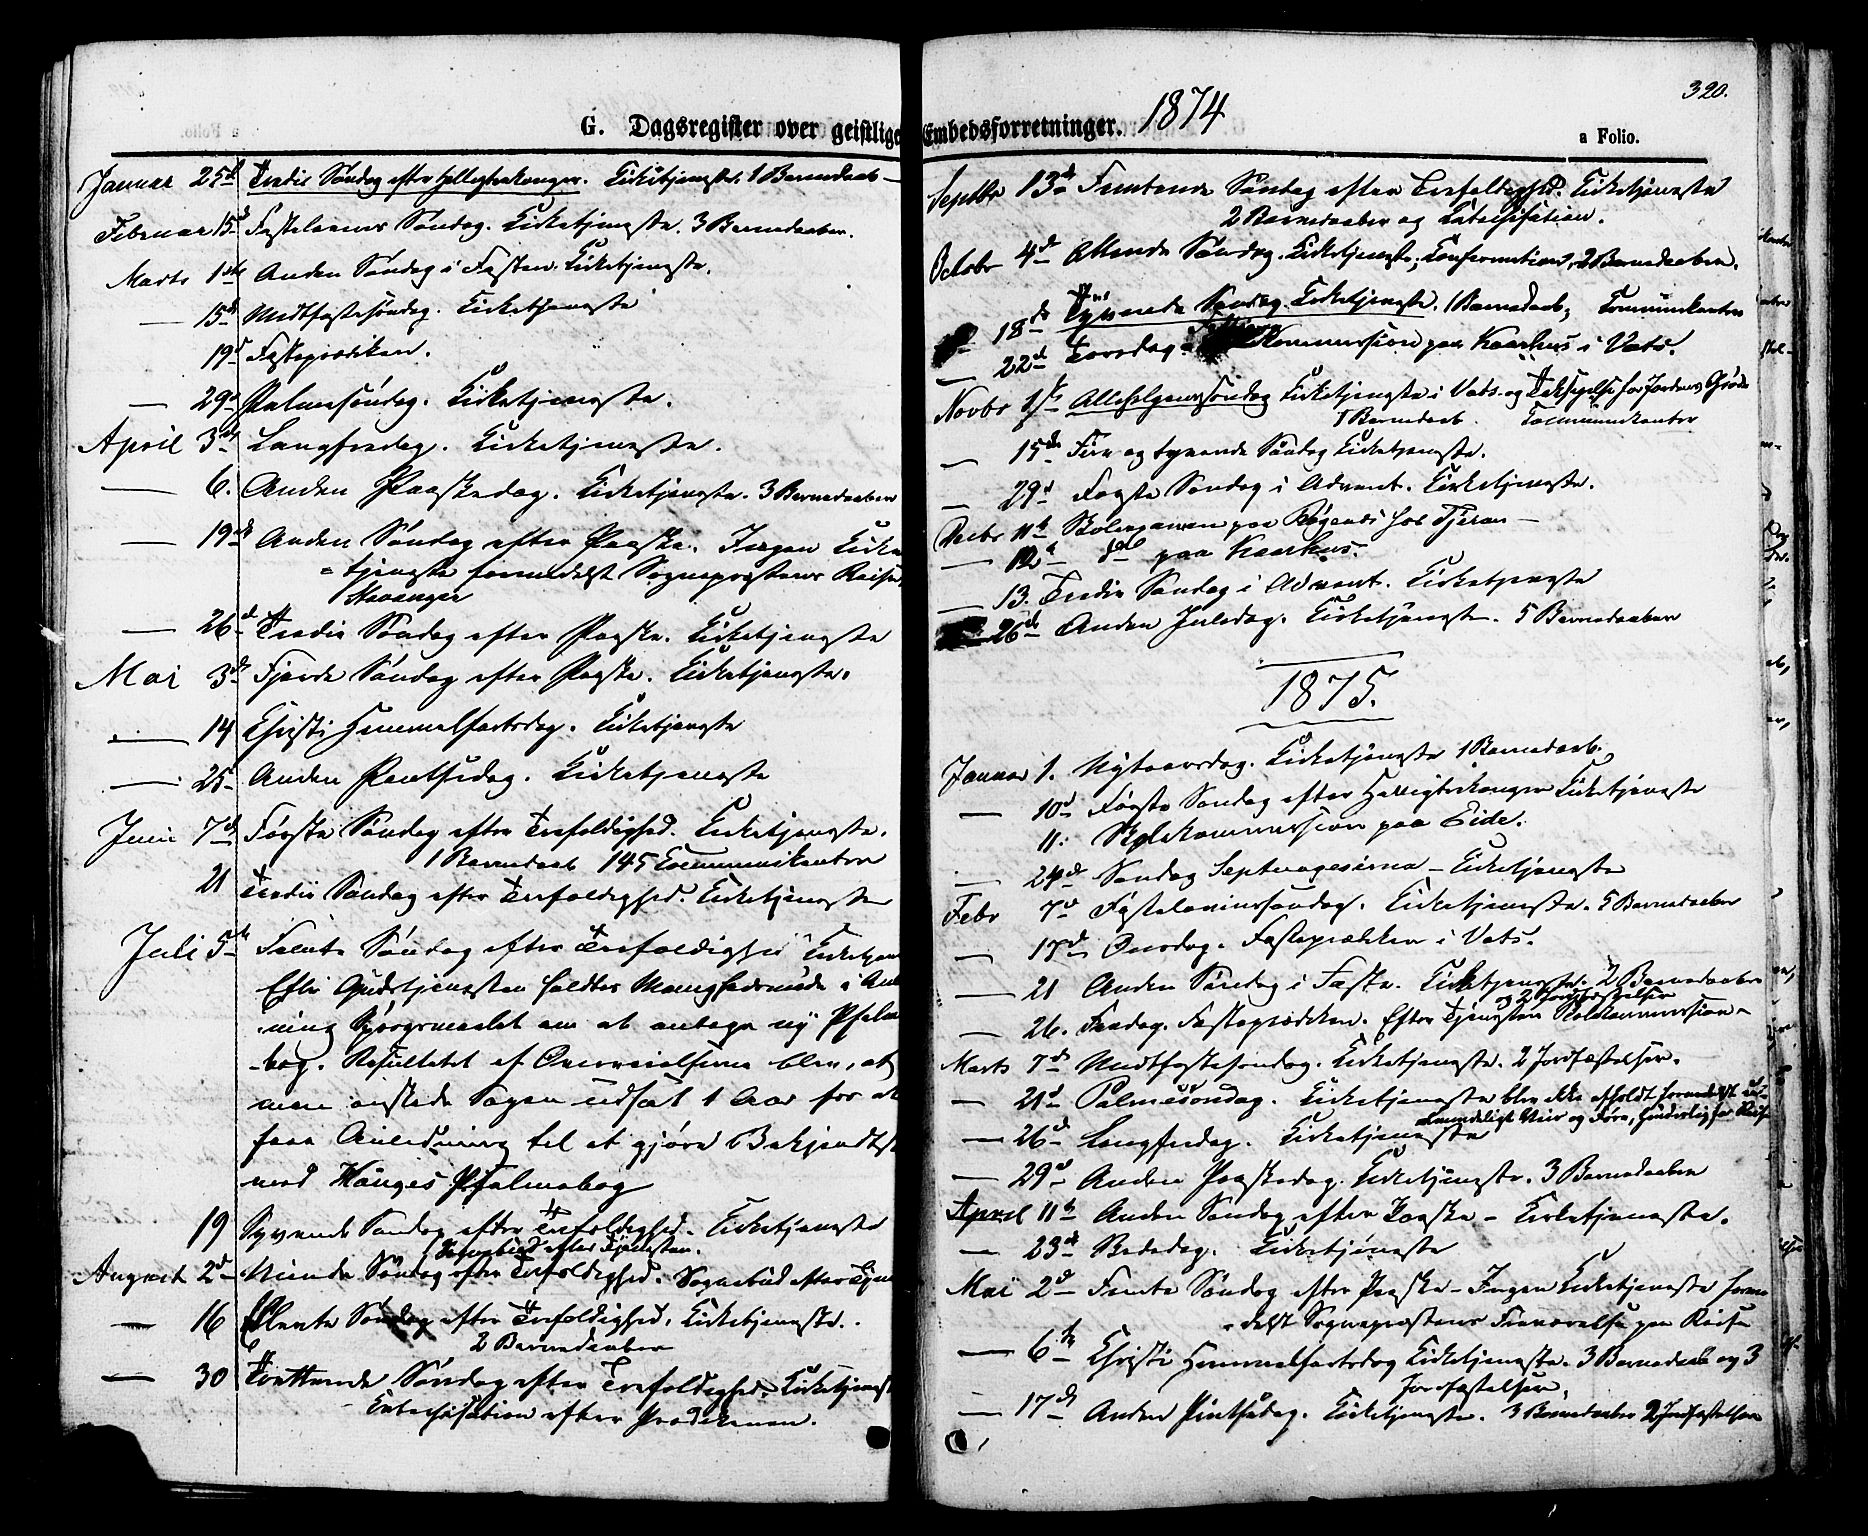 G. Dagsregister over geistlige
Januar 25d Tredie Søndag efter Helligtrekonger. Kirketjeneste. 1 Barnedaab —
Februar 15d Fastelavns Søndag. Kirketjeneste. 3 Barnedaaber.
Marts 1ste Anden Søndag i Fasten. Kirketjeneste.
— 15d Midtfastesøndag. Kirketjeneste
19d Fasteprædiken.
— 29d Palmesøndag. Kirketjeneste.
April 3die Langfredag. Kirketjeneste.
— 6. Anden Paaskedag. Kirketjeneste. 3 Barnedaaber
— 19de Anden Søndag efter Paaske. Ingen Kirke
= tjeneste formedelst Sognepræstens Reise,
Stavanger
— 26d Tredie Søndag efter Paaske. Kirketjeneste
Mai 3d Fjerde Søndag efter Paaske. Kirketjeneste.
— 14 Christi Himmelfartsdag. Kirketjeneste
— 25 Anden Pintsedag. Kirketjeneste
Juni 7d Første Søndag efter Trefoldighed. Kirketjeneste.
1 Barnedaab 145 Communikanter
21 Tredie Søndag efter Trefoldighed. Kirketjeneste
Juli 5te Femte Søndag efter Trefoldighed Kirketjen
Efter Gudstjenesten holdtes Menighedsmøde i An
ning Spørgsmaalet om at antage ny Psalme
-bog. Resultatet af blev, at
man ønskede Sagen udsat 1 Aar for at
faae Anledning til at gjøre Bekjendtsk
med Hauges Psalmebog
19 Syvende Søndag efter Trefoldighed. Kirketjeneste
efter Tjenesten.
August 2d Niende Søndag efter Trefoldighed. Sognebud efter Tjen
— 16 Ellevte Søndag efter Trefoldighed, Kirketjeneste.
2 Barnedaaber
— 30 Trettende Søndag efter Trefoldighed. Kirketjenest
- Catechisation efter Prædikenen.
320.
Embedsforretninger. 1874
a Folio.
Septbr 13d Femtende Søndag efter Trefoldighed. Kirketjeneste
2 Barnedaaber og Katechisation.
Octobr 4d Attende Søndag. Kirketjeneste, Confirmation, 2 Barnedaaber.
18de Tyvende Søndag. Kirketjeneste. 1 Barnedaab; Communikanter
— 22d Torsdag. kommission paa Kaarhus i Vats.
Novbr 1ste Allehelgenssøndag Kirketjeneste i Vats og Taksigelse for Jordens Grøde
1 Barnedaab. Communikanter
— 15de Fire og tyvende Søndag Kirketjeneste.
— 29d Første Søndag i Advent. Kirketjeneste.
Decbr 11te Skoleexamen paa hos Tjeran —
— 12d do paa Kaarhus.
— 13. Tredie Søndag i Advent. Kirketjeneste
26de Anden Juledag. Kirketjeneste. 5 Barnedaaber
1875.
Januar 1. Nytaarsdag. Kirketjeneste 1 Barnedaab.
— 10d Første Søndag efter Helligtrekonger Kirketjeneste
11. Skolekommission paa Eide.
— 24de Søndag Septuagesima – Kirketjeneste
Febr 7d Fastelavnssøndag. Kirketjeneste. 5 Barnedaaber
— 17d Onsdag. Fasteprædiken i Vats.
— 21 Anden Søndag i Faste. Kirketjeneste. 2 Barnedaaber
og 2 Jordfæstelser
— 26. Fredag. Fasteprædiken. Efter Tjenesten Skolekommission –
Marts 7de Midtfastesøndag. Kirketjeneste. 2 Jordfæstelser.
— 21d Palmesøndag. Kirketjeneste blev ikke afholdt formedelst
Veir og Føre, hinderlig for Reise
— 26d Langfredag. Kirketjeneste
— 29d Anden Paaskedag. Kirketjeneste. 3 Barnedaaber
April 11te Anden Søndag efter Paaske – Kirketjeneste.
— 23d Bededag. Kirketjeneste
Mai 2d Femte Søndag efter Paaske – Ingen Kirketjeneste forme
= delst Sognepræstens Fraværelse paa Reise
— 6te Christi Himmelfartsdag Kirketjeneste. 3 Barnedaab og 3
Jordfæstelser.
— 17d Anden Pintsedag. Kirketjeneste. 3 Barnedaaber 2 Jordfæstelser